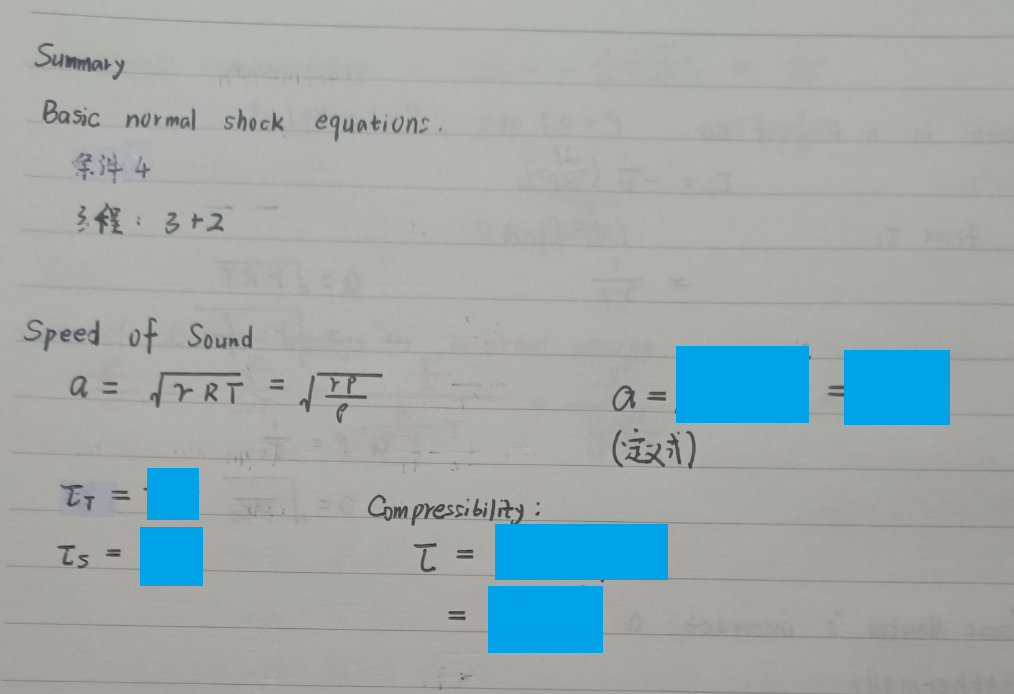 Summary
Basic normal shock equations.
条件 4
方程: 3+2
Speed of Sound
a = √(γRT) = √(γP/ρ)
a = =
(定义式)
τ_T =
τ_S =
Compressibility:
τ =
=